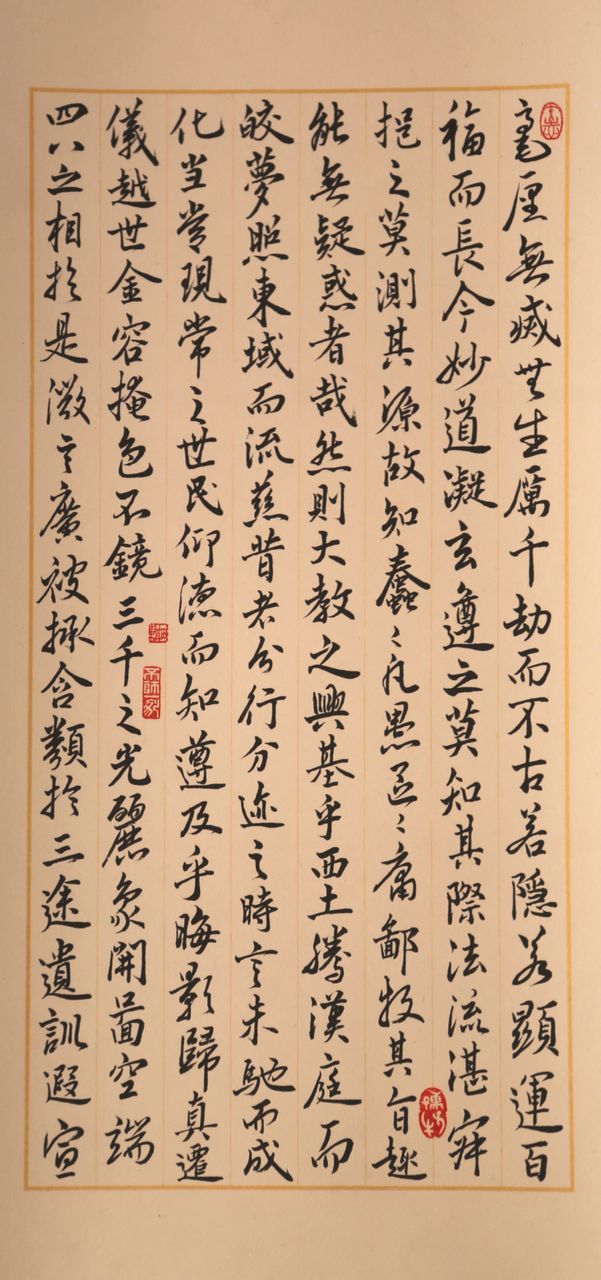 毫厘無滅無生歷千劫而不古若隱若顯運百
福而長今妙道凝玄遵之莫知其際法流湛寂
挹之莫測其源故知蠢々凡愚區々庸鄙投其旨趣
能無疑惑者哉然則大教之興基乎西土騰漢庭而
皎夢照東域而流慈昔者分行分迹之時言未馳而成
化当常現常之世民仰德而知遵及乎晦影歸真遷
儀越世金容掩色不鏡三千之光麗象開圖空端
四八之相於是微言廣被拯含類於三途遺訓遐宣